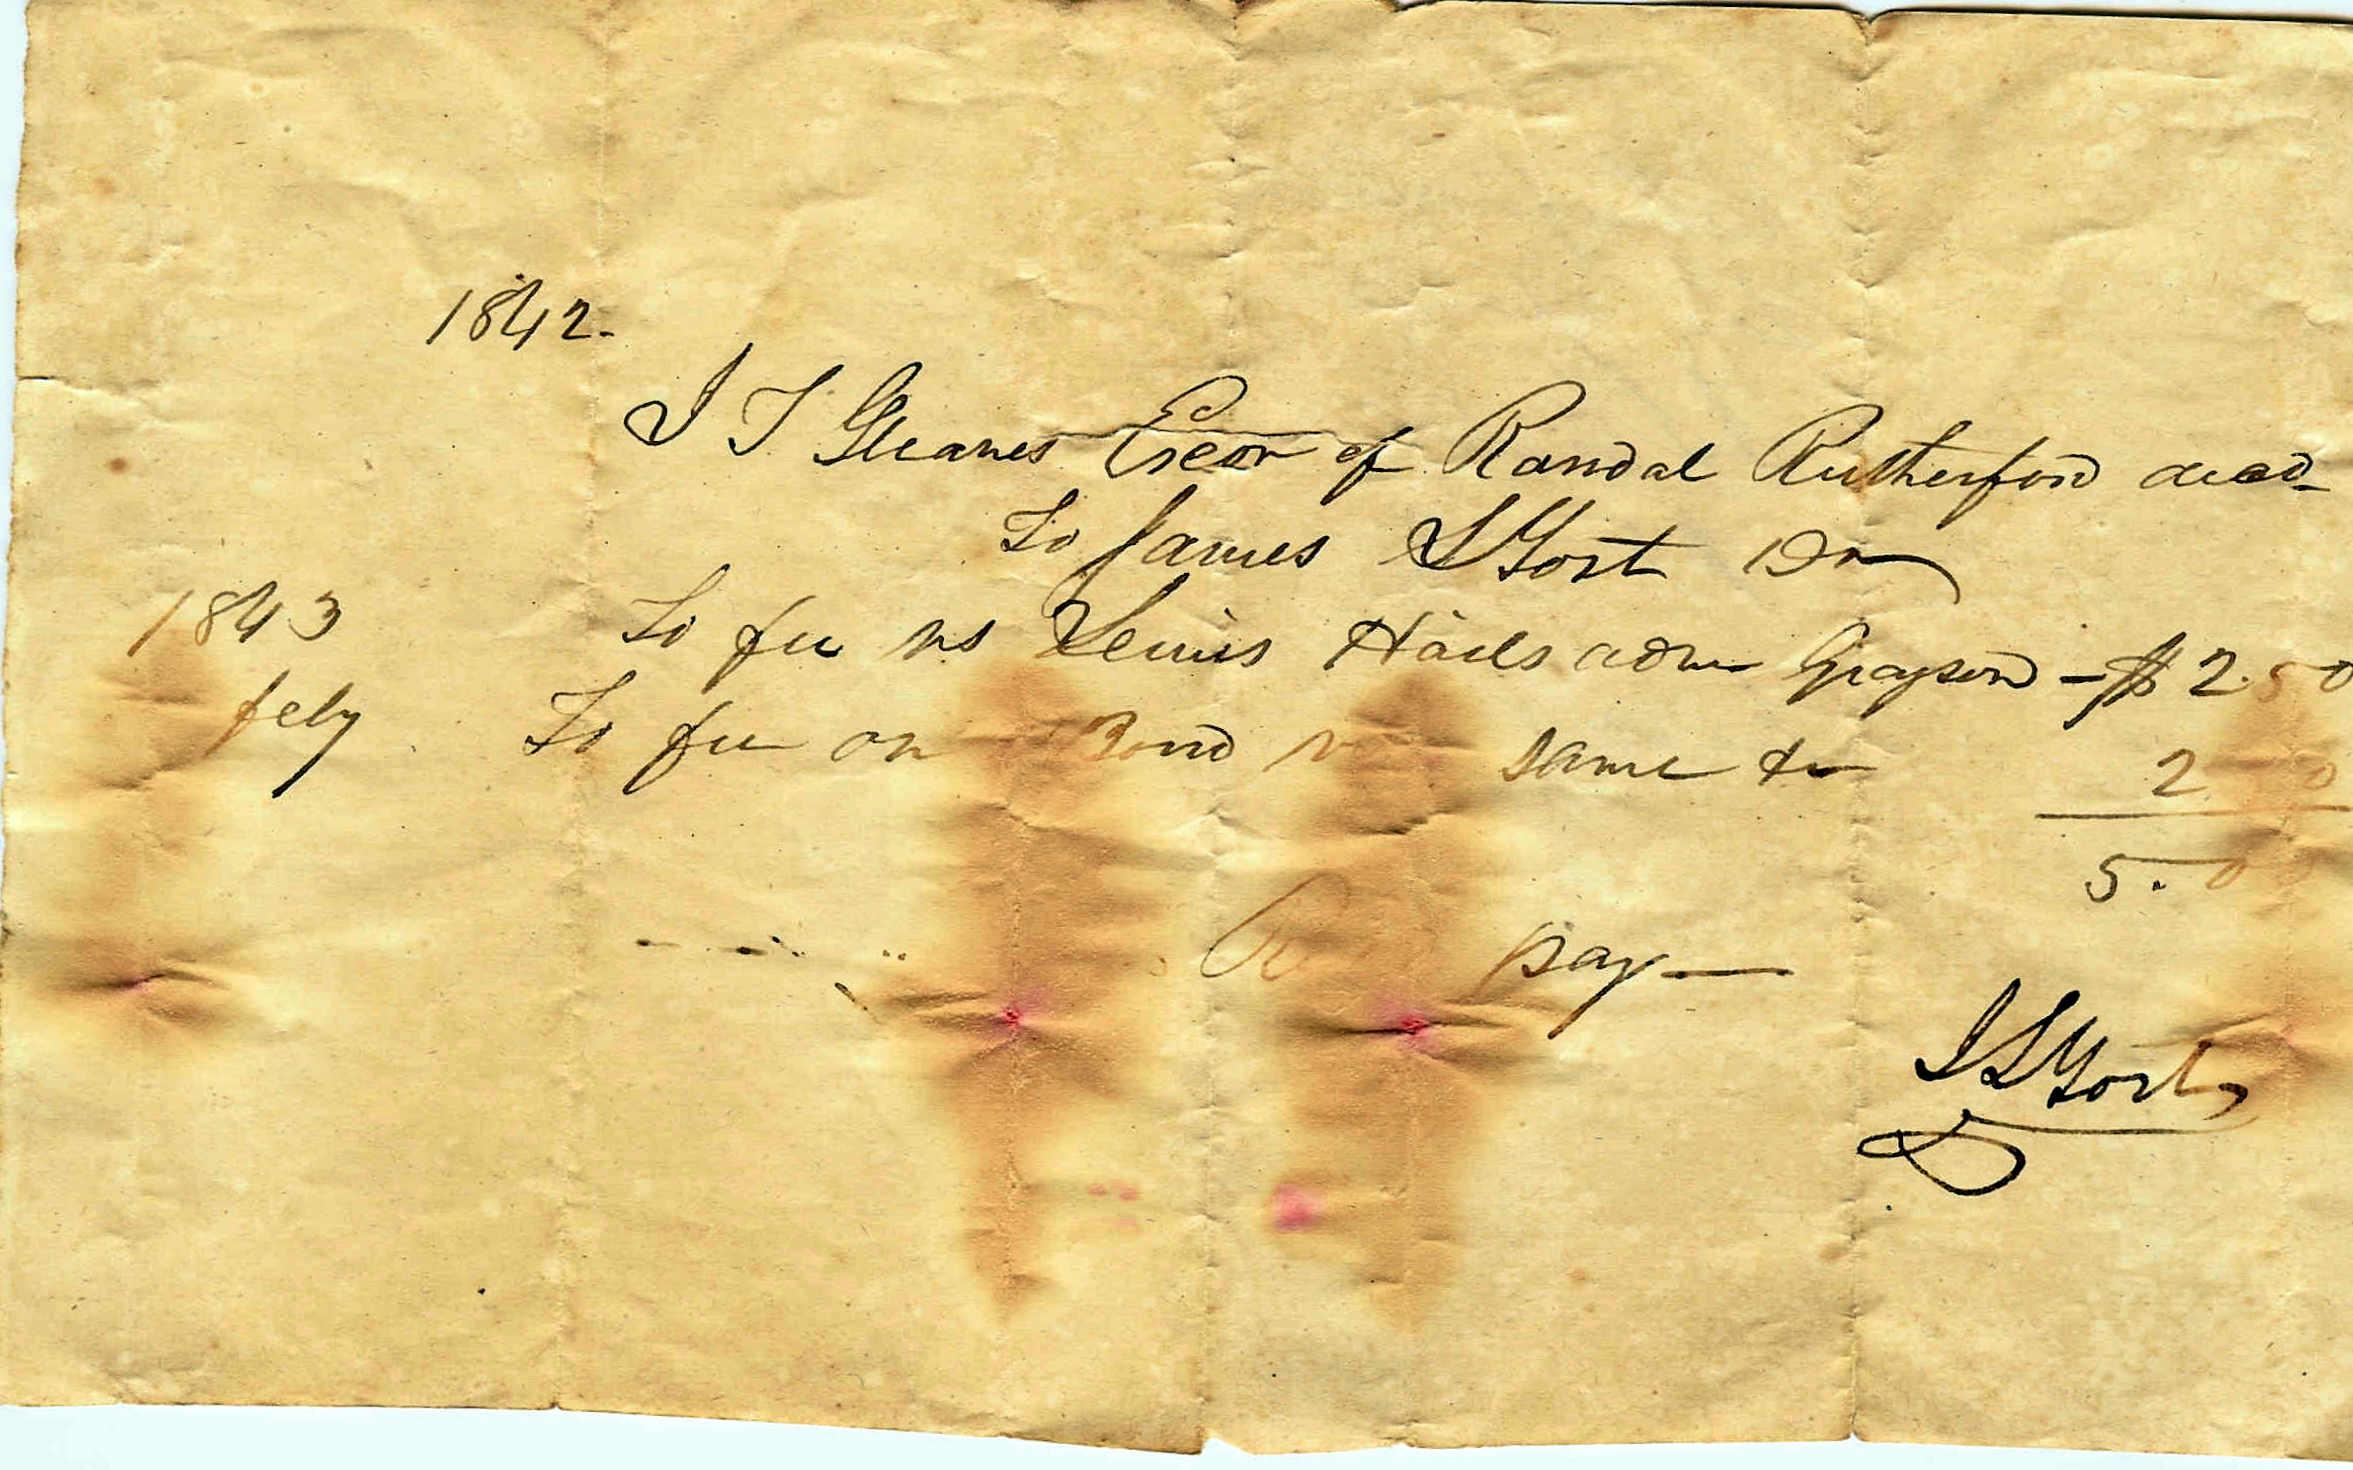 1842.
J T Gleaves Exeor of Randal Rutherford decd
To James S Yost Dr
1843 To fee vs Lewis Hails adm Grayson - $ 2.50
feby To fee on Bond same &c 2 0
5.00
pay
J S Yost